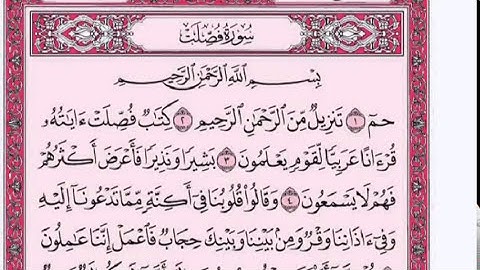 سُورَةُ فُصِّلَتْ
بِسْمِ ٱللَّهِ ٱلرَّحْمَٰنِ ٱلرَّحِيمِ
حمٓ ١ تَنزِيلٌ مِّنَ ٱلرَّحْمَٰنِ ٱلرَّحِيمِ ٢ كِتَٰبٌ فُصِّلَتْ ءَايَٰتُهُۥ
قُرْءَانًا عَرَبِيًّا لِّقَوْمٍ يَعْلَمُونَ ٣ بَشِيرًا وَنَذِيرًا فَأَعْرَضَ أَكْثَرُهُمْ
فَهُمْ لَا يَسْمَعُونَ ٤ وَقَالُوا۟ قُلُوبُنَا فِىٓ أَكِنَّةٍ مِّمَّا تَدْعُونَآ إِلَيْهِ
وَفِىٓ ءَاذَانِنَا وَقْرٌ وَمِنۢ بَيْنِنَا وَبَيْنِكَ حِجَابٌ فَٱعْمَلْ إِنَّنَا عَٰمِلُونَ